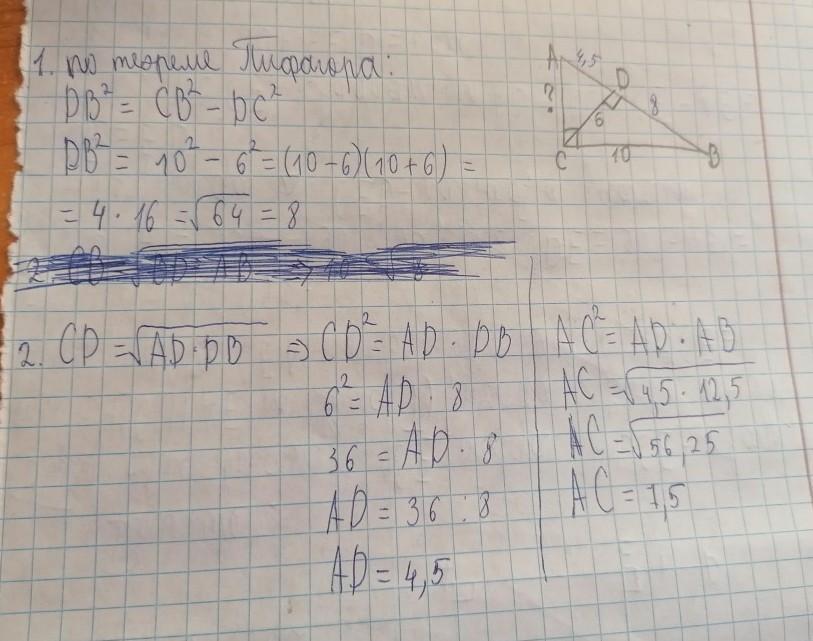 1. по теореме Пифагора:
DB² = CB² - DC²
DB² = 10² - 6² = (10-6)(10+6) =
= 4 · 16 = √64 = 8
2. CD = √AD·DB ⇒ CD² = AD · DB
6² = AD · 8
36 = AD · 8
AD = 36 : 8
AD = 4,5
AC² = AD · AB
AC = √4,5 · 12,5
AC = √56,25
AC = 7,5
A 4,5
D
? 8
6
C 10 B